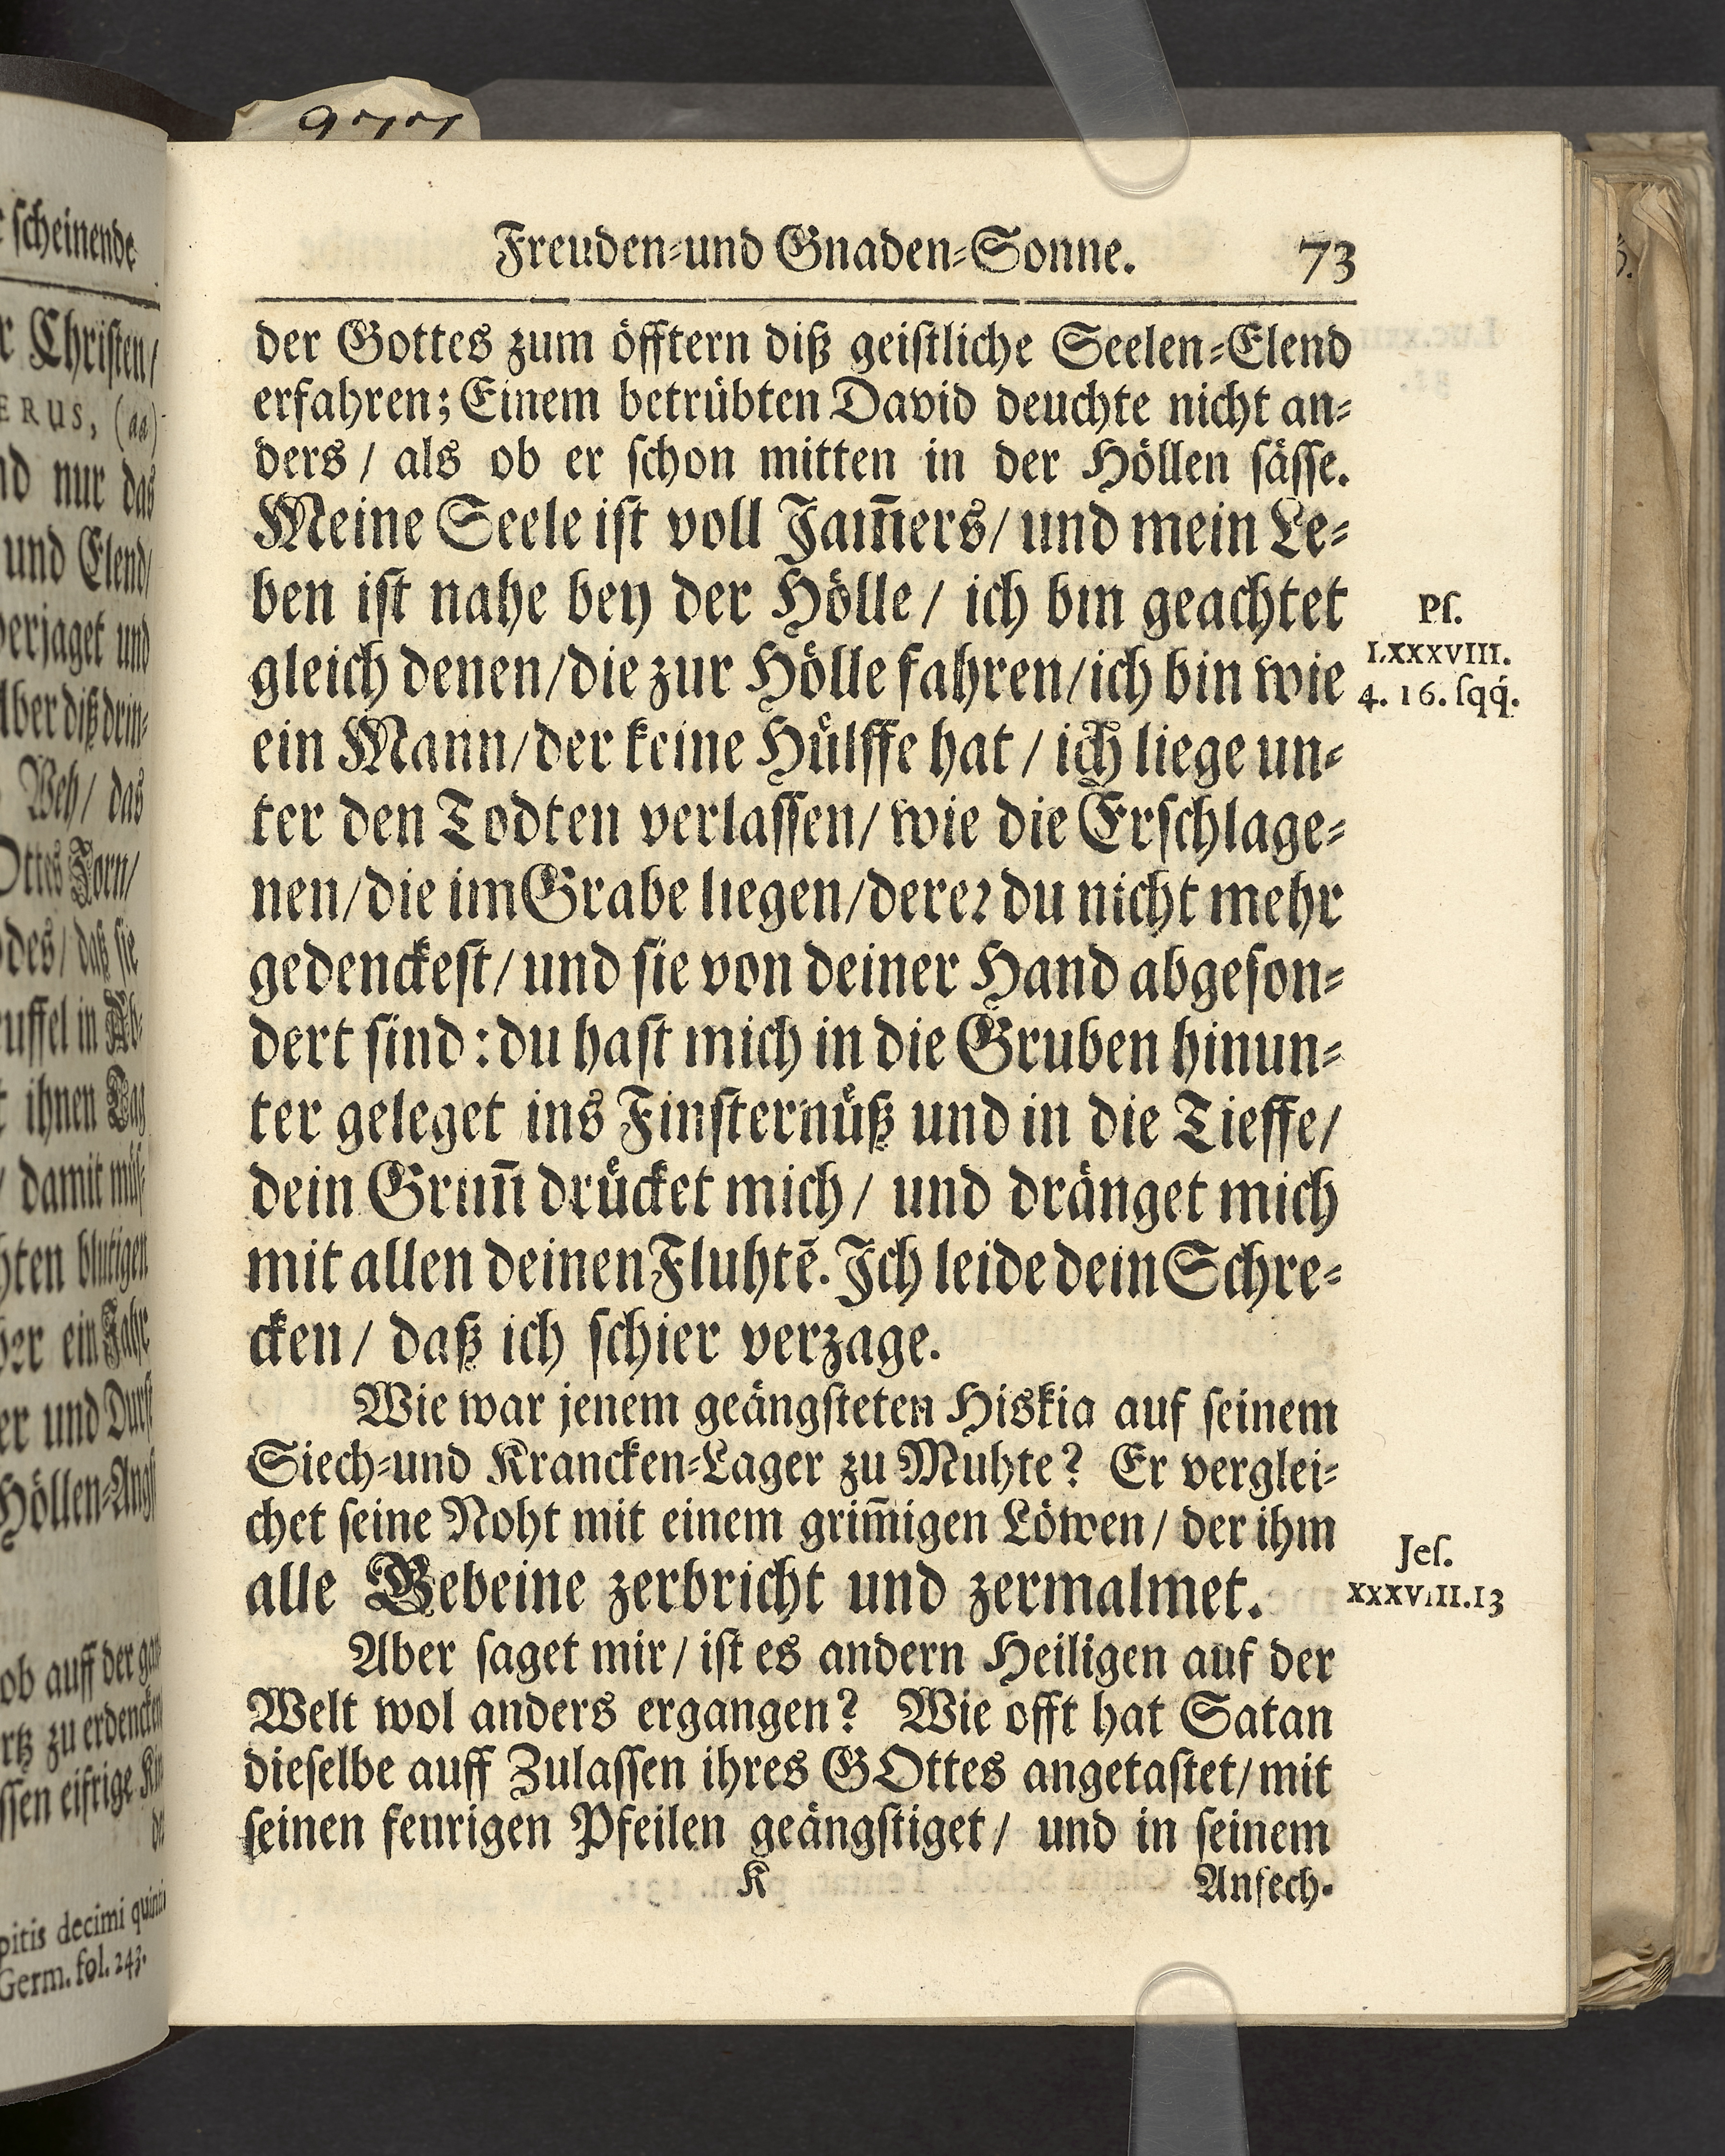 Freuden-und Gnaden-Sonne. 73
der Gottes zum öfftern diß geistliche Seelen-Elend
erfahren; Einem betrübten David deuchte nicht an-
ders / als ob er schon mitten in der Höllen sässe.
Meine Seele ist voll Jam̄ers/ und mein Le-
ben ist nahe bey der Hölle / ich bin geachtet
gleich denen/die zur Hölle fahren/ich bin wie
ein Mann/der keine Hülffe hat / ich liege un-
ter den Todten verlassen/ wie die Erschlage-
nen/die im Grabe liegen/derer du nicht mehr
gedenckest/ und sie von deiner Hand abgeson-
dert sind: du hast mich in die Gruben hinun-
ter geleget ins Finsternüß und in die Tieffe/
dein Grim̄ drücket mich/ und dränget mich
mit allen deinen Fluhtē. Ich leide dein Schre-
cken/ daß ich schier verzage.
Ps.
LXXXVIII.
4. 16. sqq́.
Wie war jenem geängsteten Hiskia auf seinem
Siech-und Krancken-Lager zu Muhte? Er verglei-
chet seine Noht mit einem grim̄igen Löwen / der ihm
alle Gebeine zerbricht und zermalmet.
Jes.
XXXVIII.13
Aber saget mir/ ist es andern Heiligen auf der
Welt wol anders ergangen? Wie offt hat Satan
dieselbe auff Zulassen ihres GOttes angetastet/ mit
seinen feurigen Pfeilen geängstiget/ und in seinem
K Anfech-
scheinende
Christen/
ERUS, (aa)
nur das
und Elend/
verjaget und
Aber diß drin-
Weh/ das
Ottes Zorn/
des/ daß sie
in Ab-
ihnen Tag
damit müs-
blutigen
ein Jahr
und Durst
Höllen-Angst
ob auff der gan-
zu erdencken
eifrige Kin-
de
pitis decimi quinti
Germ. fol. 243.